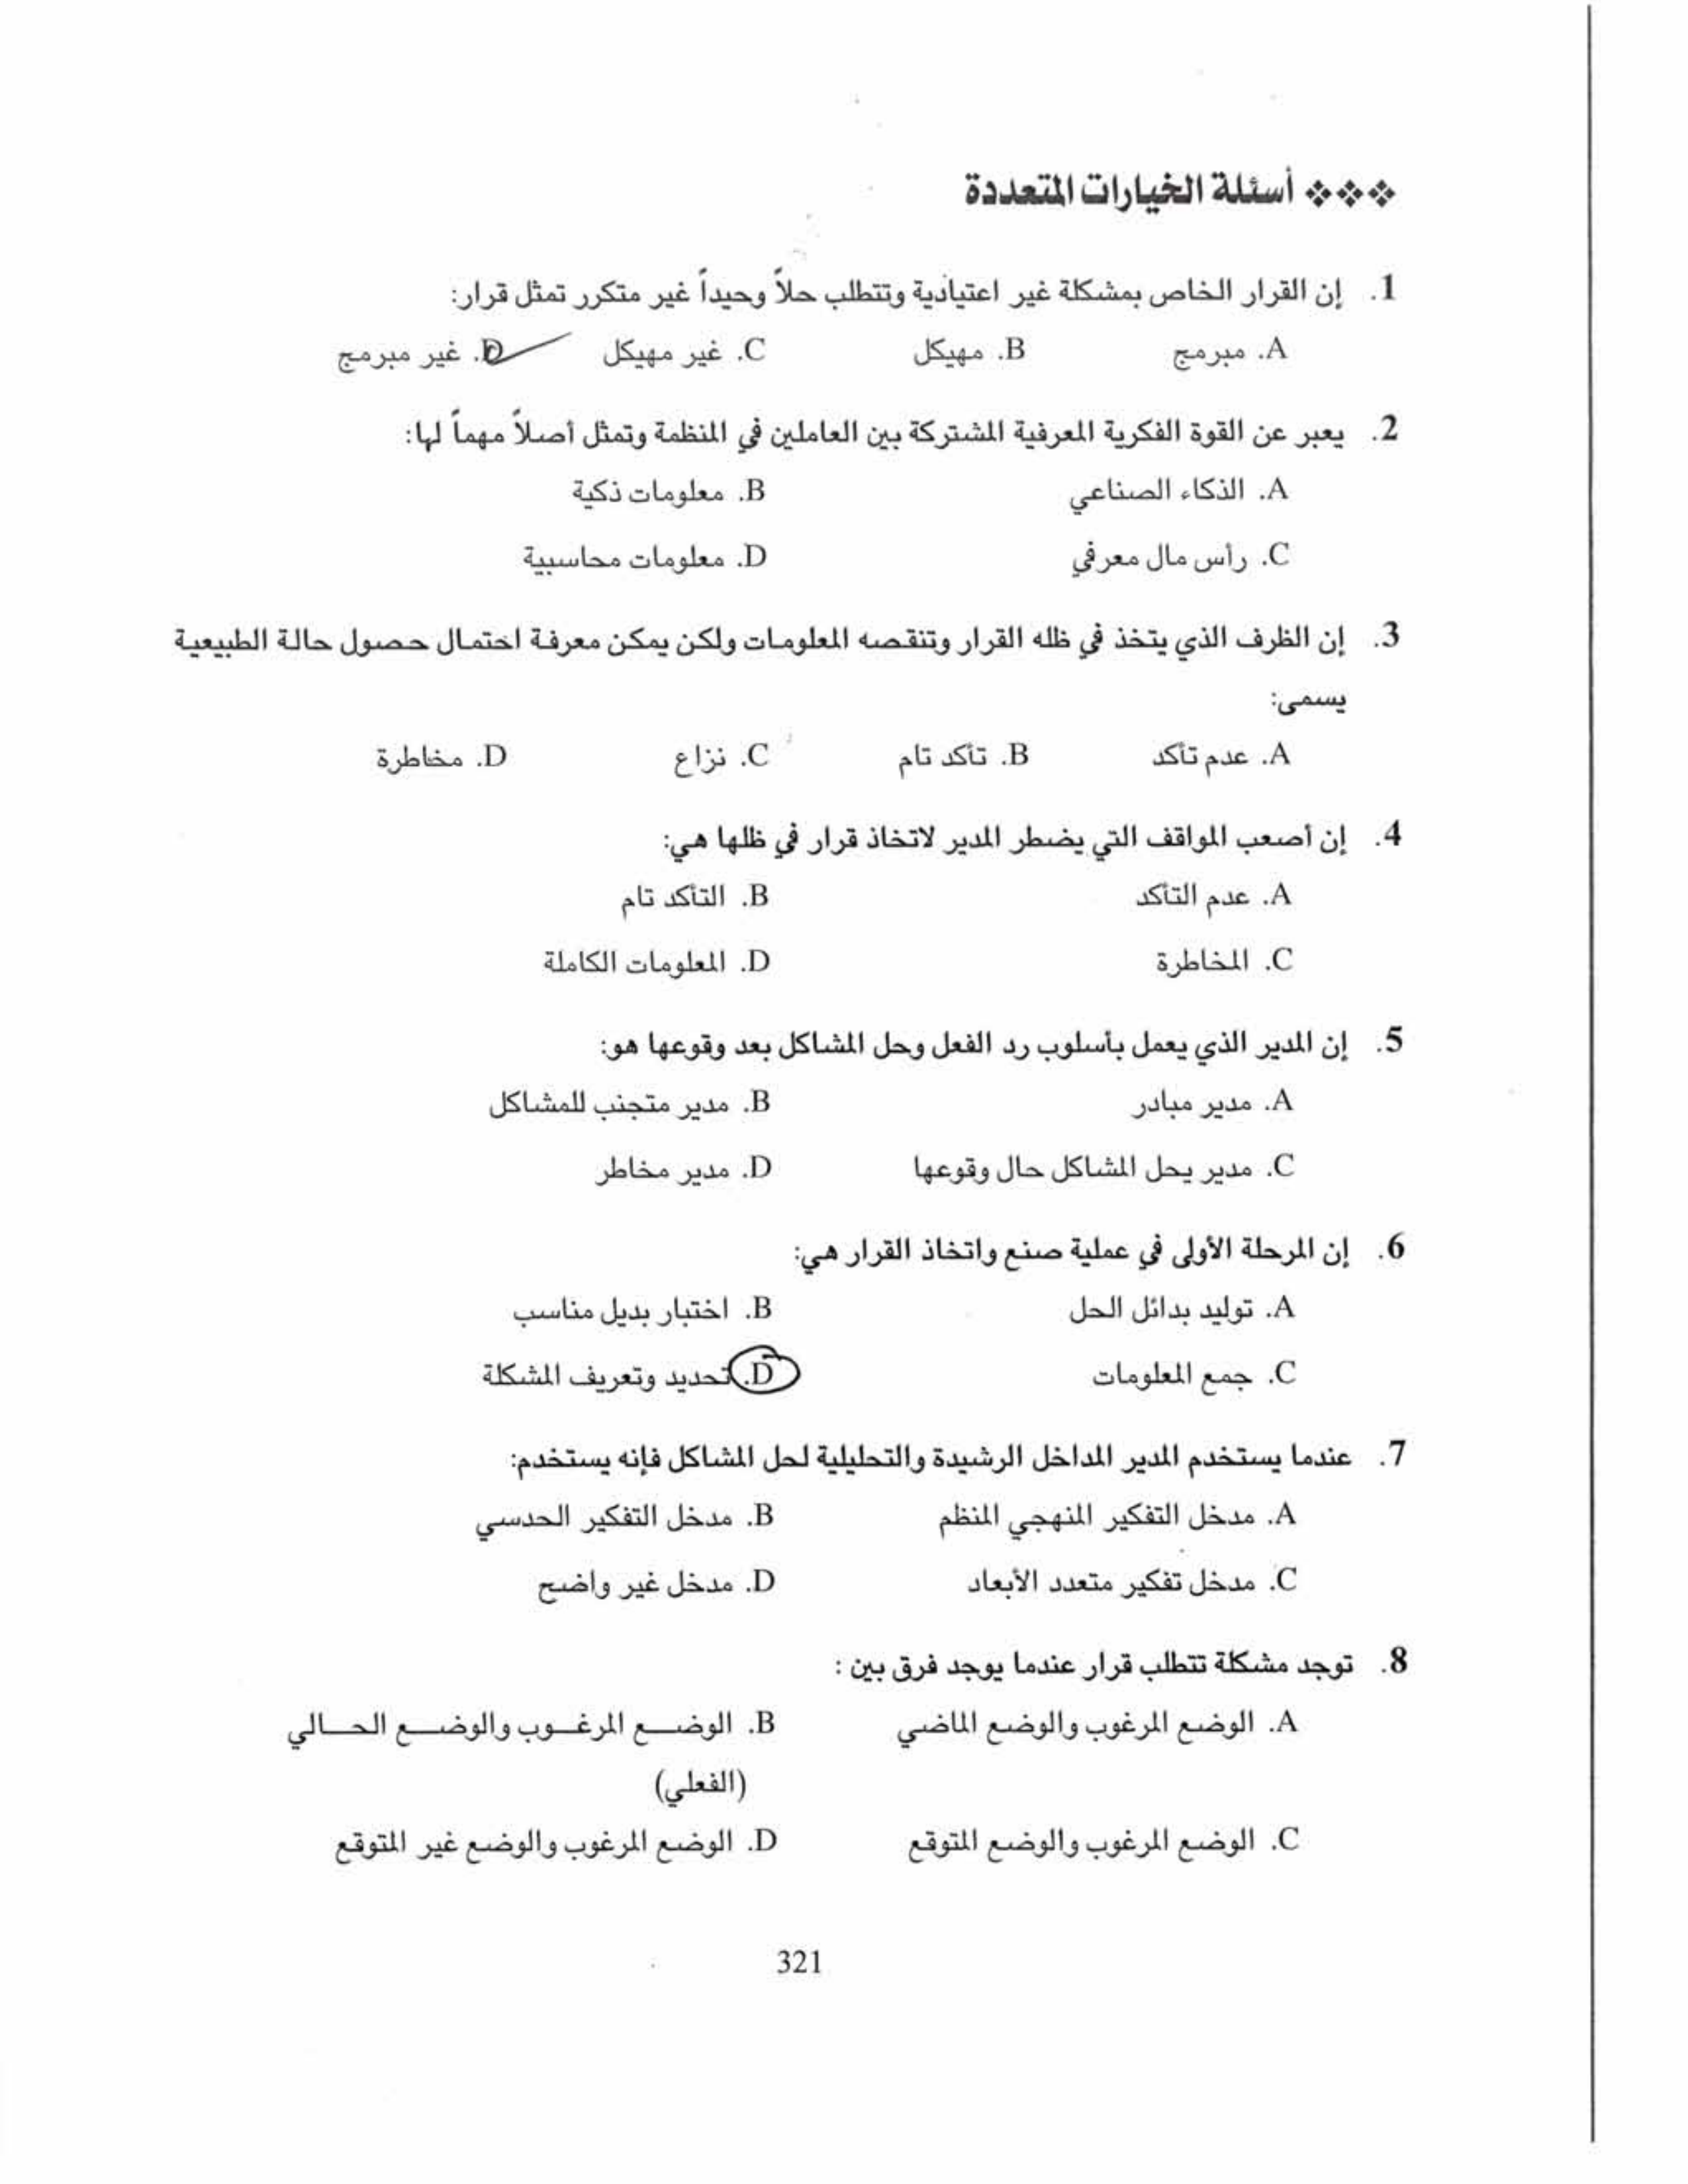 أسئلة الخيارات المتعددة
1. إن القرار الخاص بمشكلة غير اعتيادية وتتطلب حلاً وحيداً غير متكرر تمثل قرار:
A. مبرمج B. مهيكل C. غير مهيكل D. غير مبرمج
2. يعبر عن القوة الفكرية المعرفية المشتركة بين العاملين في المنظمة وتمثل أصلاً مهماً لها:
A. الذكاء الصناعي B. معلومات ذكية
C. رأس مال معرفي D. معلومات محاسبية
3. إن الظرف الذي يتخذ في ظله القرار وتنقصه المعلومات ولكن يمكن معرفة احتمال حصول حالة الطبيعية
يسمى:
A. عدم تأكد B. تأكد تام C. نزاع D. مخاطرة
4. إن أصعب المواقف التي يضطر المدير لاتخاذ قرار في ظلها هي:
A. عدم التأكد B. التأكد تام
C. المخاطرة D. المعلومات الكاملة
5. إن المدير الذي يعمل بأسلوب رد الفعل وحل المشاكل بعد وقوعها هو:
A. مدير مبادر B. مدير متجنب للمشاكل
C. مدير يحل المشاكل حال وقوعها D. مدير مخاطر
6. إن المرحلة الأولى في عملية صنع واتخاذ القرار هي:
A. توليد بدائل الحل B. اختبار بديل مناسب
C. جمع المعلومات D. تحديد وتعريف المشكلة
7. عندما يستخدم المدير المداخل الرشيدة والتحليلية لحل المشاكل فإنه يستخدم:
A. مدخل التفكير المنهجي المنظم B. مدخل التفكير الحدسي
C. مدخل تفكير متعدد الأبعاد D. مدخل غير واضح
8. توجد مشكلة تتطلب قرار عندما يوجد فرق بين :
A. الوضع المرغوب والوضع الماضي B. الوضع المرغوب والوضع الحالي
(الفعلي)
C. الوضع المرغوب والوضع المتوقع D. الوضع المرغوب والوضع غير المتوقع
321